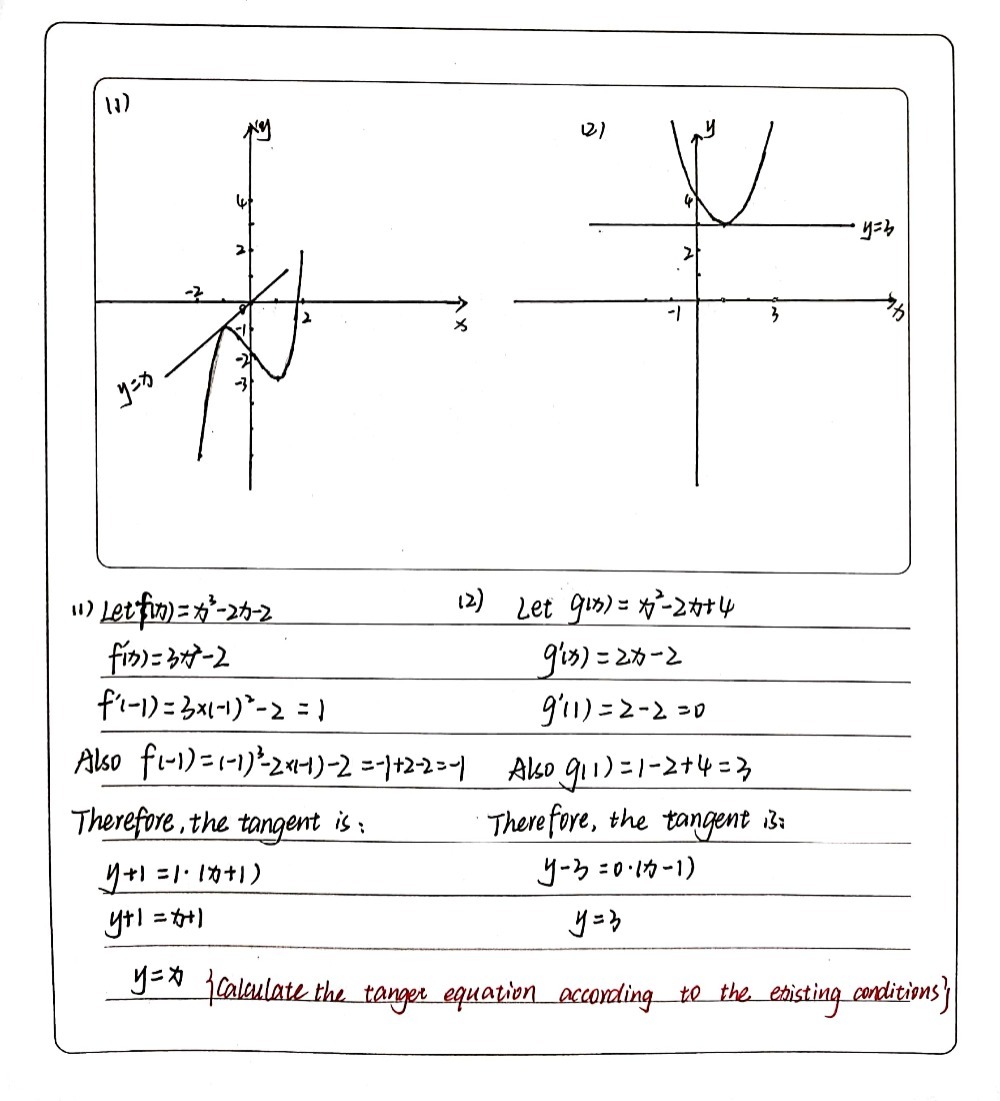 (1)
y
4
2
-2
0
2
x
-1
-2
-3
y=x
(2)
y
4
y=3
2
-1
3
x
(1) Let f(x)=x³-2x-2
f'(x)=3x²-2
f'(-1)=3×(-1)²-2=1
Also f(-1)=(-1)³-2×(-1)-2=-1+2-2=-1
Therefore, the tangent is:
y+1=1·(x+1)
y+1=x+1
y=x
(2) Let g(x)=x²-2x+4
g'(x)=2x-2
g'(1)=2-2=0
Also g(1)=1-2+4=3
Therefore, the tangent is:
y-3=0·(x-1)
y=3
{Calculate the tanger equation according to the existing conditions}